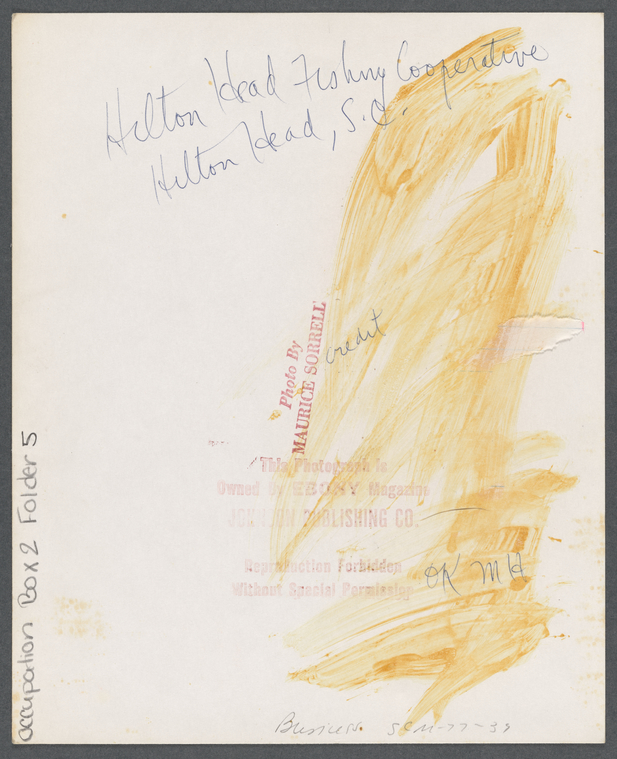 Hilton Head Fishing Cooperative
Hilton Head, S.C.
Photo By
MAURICE SORRELL
credit
This Photograph is
Owned By EBONY Magazine
JOHNSON PUBLISHING CO.
Reproduction Forbidden
Without Special Permission
OK MH
Occupation Box 2 Folder 5
Business.